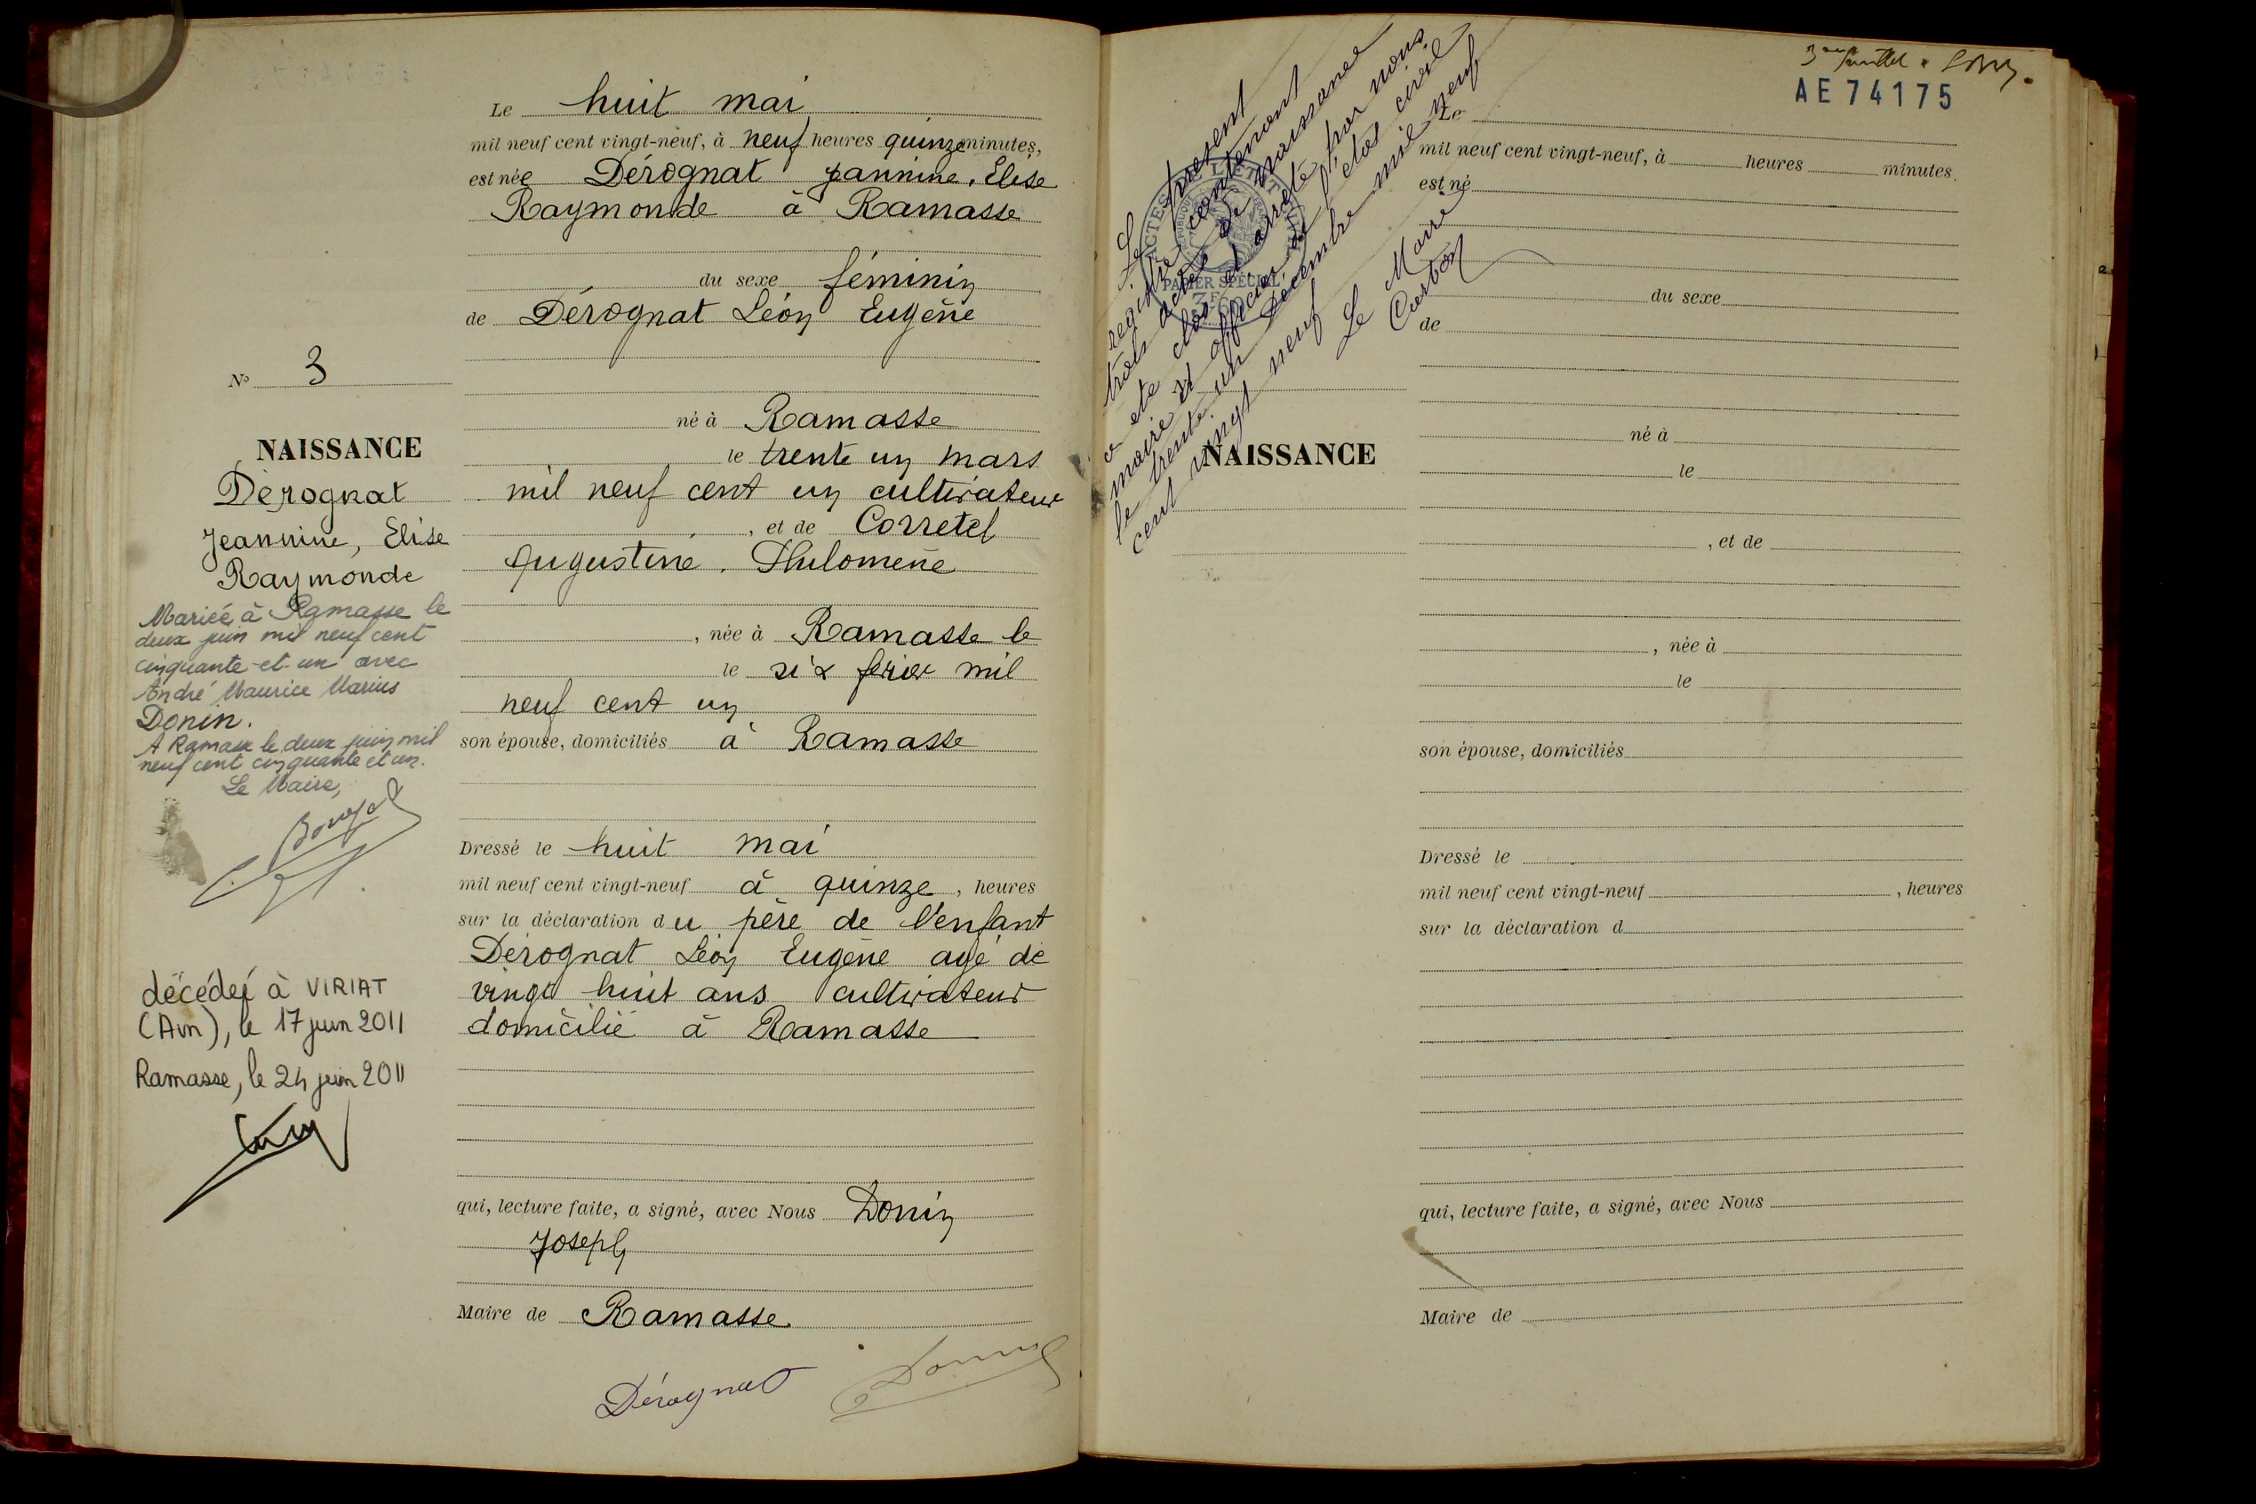 Le huit mai
mil neuf cent vingt-neuf, à neuf heures quinze minutes,
est née Dérognat Jannine, Elise
Raymonde à Ramasse
du sexe féminin
de Dérognat Léon Eugène
N° 3
né à Ramasse
NAISSANCE
le trente un mars
Dérognat
mil neuf cent un cultivateur
Jeannine, Elise
, et de Corretel
Raymonde
Augustine. Philomène
Mariée à Ramasse le
deux juin mil neuf cent
cinquante-et-un avec
André Maurice Marius
Donin.
A Ramasse le deux juin mil
neuf cent cinquante et un.
Le Maire,
, née à Ramasse le
le six ferier mil
neuf cent un
son épouse, domiciliés à Ramasse
Dressé le huit mai
mil neuf cent vingt-neuf à quinze, heures
sur la déclaration du père de l'enfant
Dérognat Léon Eugène agé de
vingt huit ans cultivateur
domicilié à Ramasse
décédée à VIRIAT
(Ain), le 17 juin 2011
Ramasse, le 24 juin 2011
qui, lecture faite, a signé, avec Nous Donin
Joseph
Maire de Ramasse
Dérognat
Donin
AE 74175
Le présent
registre contenant
trois actes de naissance
a été clos et arrêté par nous
maire et officier de l'état civil
le trente un Décembre mil neuf
cent vingt neuf
Le Maire
Corton
ACTES DE L'ÉTAT CIVIL
PAPIER SPÉCIAL
Le
mil neuf cent vingt-neuf, à heures minutes.
est né
du sexe
de
né à
NAISSANCE
le
, et de
, née à
le
son épouse, domiciliés
Dressé le
mil neuf cent vingt-neuf , heures
sur la déclaration d
qui, lecture faite, a signé, avec Nous
Maire de